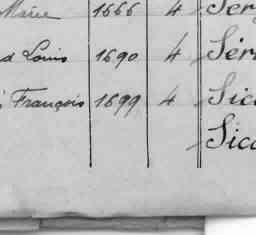 Marie 1666 4 Ser
d Louis 1690 4 Sér
François 1699 4 Sic
Sico